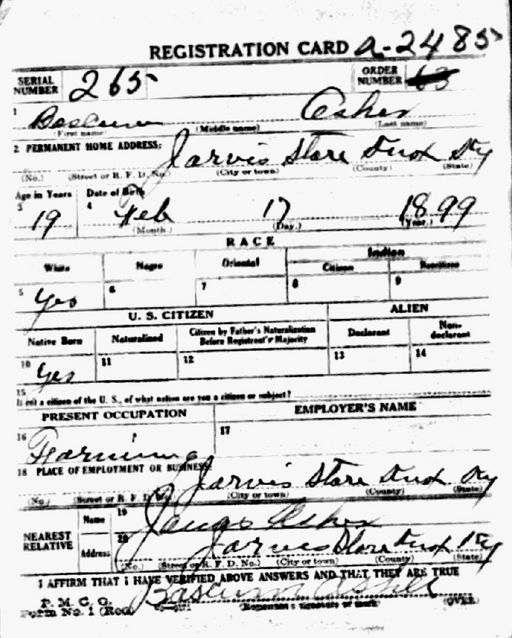 REGISTRATION CARD A-2485
SERIAL NUMBER 265 ORDER NUMBER 63
1 Asher
(First name) (Middle name) (Last name)
2 PERMANENT HOME ADDRESS: Jarvis Store Knox Ky
(No.) (Street or R. F. D. No.) (City or town) (County) (State)
Age in Years Date of Birth
3 19 4 Feb 17 1899
(Month.) (Day.) (Year.)
RACE
White Negro Oriental Indian
Citizen Noncitizen
5 Yes 6 7 8 9
U. S. CITIZEN ALIEN
Native Born Naturalized Citizen by Father's Naturalization Before Registrant's Majority Declarant Non-declarant
10 Yes 11 12 13 14
15 If not a citizen of the U. S., of what nation are you a citizen or subject?
PRESENT OCCUPATION EMPLOYER'S NAME
16 Farming 17
18 PLACE OF EMPLOYMENT OR BUSINESS:
Jarvis Store Knox Ky
(No.) (Street or R. F. D. No.) (City or town) (County) (State)
NEAREST RELATIVE Name 19 James Asher
Address 20 Jarvis Store Knox Ky
(No.) (Street or R. F. D. No.) (City or town) (County) (State)
I AFFIRM THAT I HAVE VERIFIED ABOVE ANSWERS AND THAT THEY ARE TRUE
P. M. G. O.
Form No. 1 (Red) (Registrant's signature or mark) (OVER)